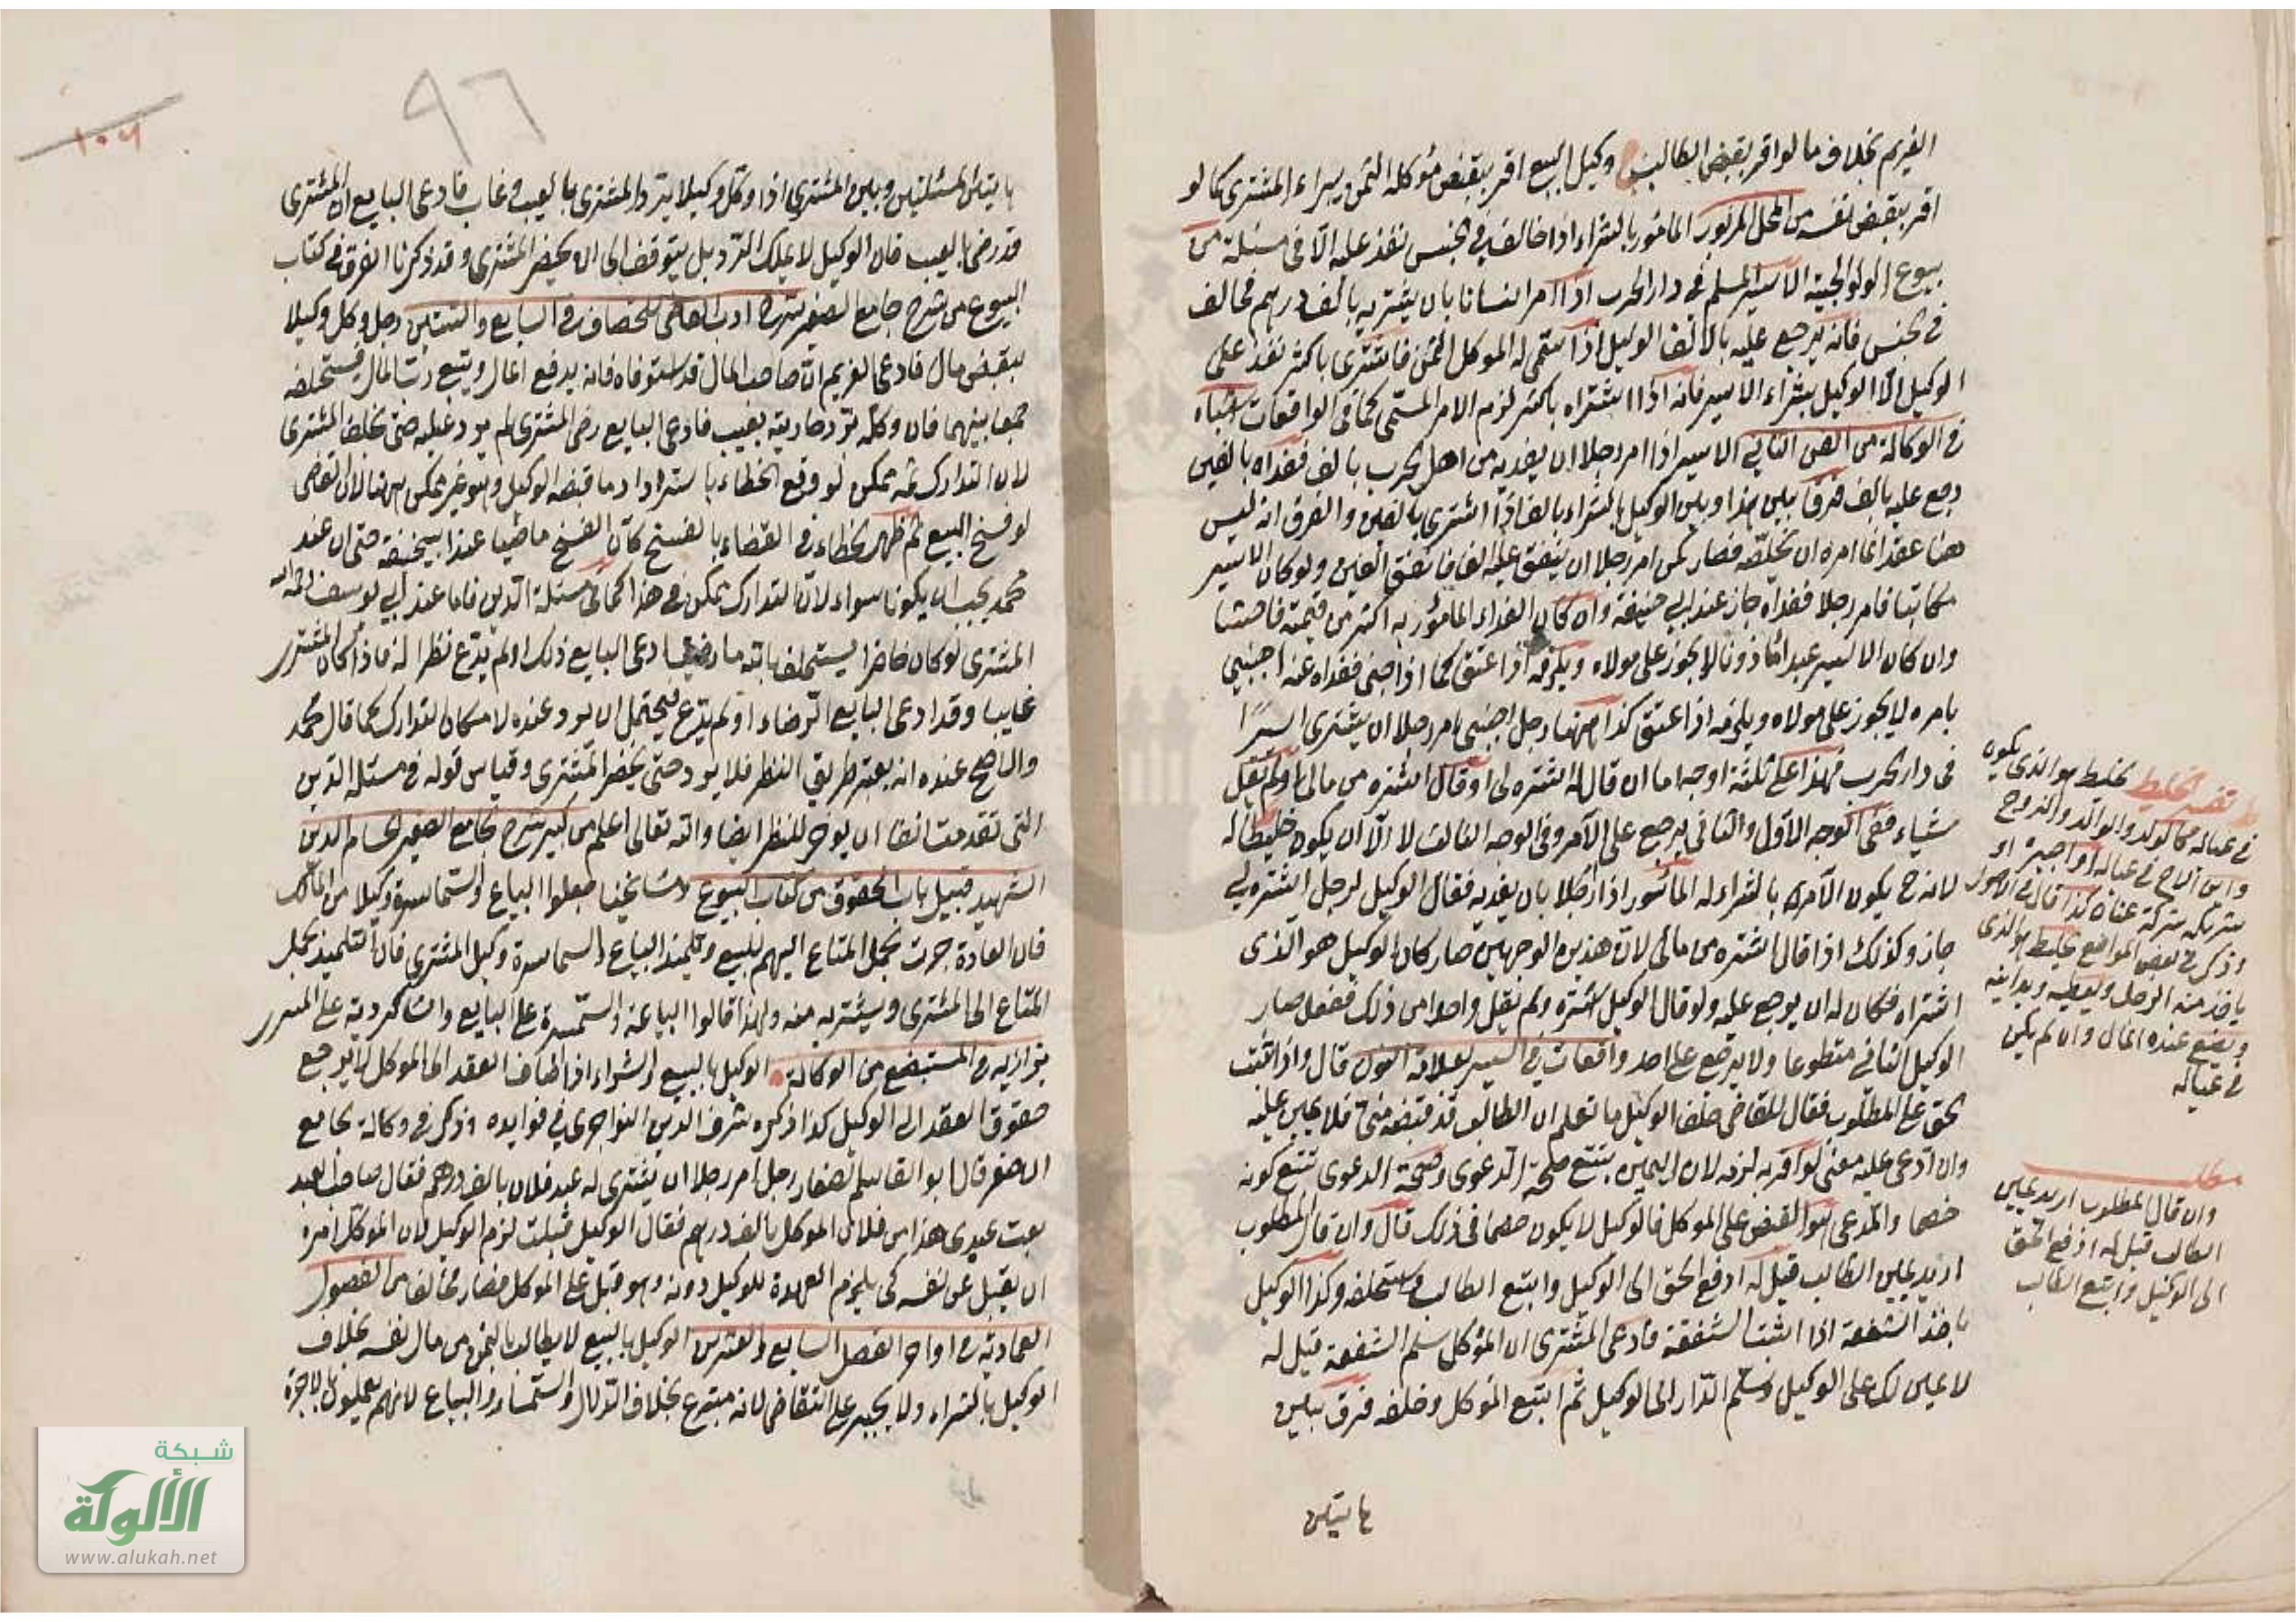 الغريم بخلاف ما لو اقر بقبض الطالب وكيل البيع اقر بقبض مؤكله الثمن برىء المشترى كما لو
اقر بقبض نفسه من المحل المزبور المأمور بالشراء اذا خالف في الجنس نفذ عليه الا في مسئلة من
بيوع الولوالجية الاسير المسلم في دار الحرب اذا امر انسانا بان يشتريه بالف درهم فخالف
في الجنس فانه يرجع عليه بالالف الوكيل اذا سمى له الموكل الثمن فاشترى باكثر نفذ على
الوكيل الا الوكيل بشراء الاسير فانه اذا اشتراه باكثر لزم الامر المسمى كما في الواقعات اشباه
في الوكالة من الفن الثاني الاسير اذا امر رجلا ان يفديه من اهل الحرب بالف ففداه بالفين
رجع عليه بالف فرق بين هذا وبين الوكيل بالشراء بالف اذا اشترى بالفين والفرق انه ليس
هنا عقد انما امره ان يخلصه فصار كمن امر رجلا ان ينفق عليه الفا فانفق الفين ولو كان الاسير
مكاتبا فامر رجلا ففداه جاز عند ابي حنيفة وان كان الفداء المأمور به اكثر من قيمته فاحشا
وان كان الاسير عبدا مأذونا لا يجوز على مولاه ويلزمه اذا عتق كما اذا جنى ففداه عنه اجنبي
بامره لا يجوز على مولاه ويلزمه اذا عتق كذا ههنا رجل اجنبي امر رجلا ان يشترى اسيرا
في دار الحرب فهذا على ثلثة اوجه اما ان قال له اشتره لي او قال اشتره من مالي او لم يقل
شيئا ففي الوجه الاول والثاني يرجع على الآمر وفي الوجه الثالث لا الا ان يكون خليطا له
لانه ح يكون الآمر بالشراء له المأسور اذا رجلا بان يفديه فقال الوكيل لرجل اشتره لي
جاز وكذلك اذا قال اشتره من مالي لان هذين الوجهين صار كان الوكيل هو الذى
اشتراه فكان له ان يرجع عليه ولو قال الوكيل اشتره ولم يقل واحدا من ذلك ففعل صار
الوكيل الثاني متطوعا ولا يرجع على احد واقعات في السير بعلامة النون قال واذا ثبت
الحق على المطلوب فقال للقاضي حلف الوكيل ما تعلم ان الطالب قد قبضه مني فلا يمين عليه
وان ادعى عليه معنى لو اقر به لزمه لان اليمين يتبع صحة الدعوى وصحة الدعوى تتبع كونه
خصما والمدعى هو القبض على الموكل فالوكيل لا يكون خصما في ذلك قال وان قال المطلوب
اريد يمين الطالب قيل له ادفع الحق الى الوكيل واتبع الطالب فاستحلفه وكذا الوكيل
باخذ الشفعة اذا اثبت الشفعة فادعى المشترى ان الموكل سلم الشفعة قيل له
لا يمين لك على الوكيل وسلم الدار الى الوكيل ثم اتبع الموكل وحلفه فرق بين
هاتين
تفسير الخليط الخليط هو الذى يكون
في عياله كالولد والوالد والزوج
وابن الاخ في عياله او اجيره او
شريكه شركة عنان كذا قال في الاصول
وذكر في بعض المواضع الخليط هو الذى
ياخذ منه الرجل ويعطيه ويداينه
ويضع عنده المال وان لم يكن
في عياله
مطلب
وان قال المطلوب اريد يمين
الطالب قيل له ادفع الحق
الى الوكيل واتبع الطالب
٩٦
هاتين المسئلتين وبين المشترى اذا وكل وكيلا برد المشترى بالعيب وغاب فادعى البايع ان المشترى
قد رضى بالعيب فان الوكيل لا يملك الرد بل يتوقف الى ان يحضر المشترى وقد ذكرنا الفرق في كتاب
البيوع من شرح جامع الصغير شرح ادب القاضي للخصاف في السابع والستين رجل وكل وكيلا
بقبض مال فادعى الغريم ان صاحب المال قد استوفاه فانه يدفع المال ويتبع رب المال فيستحلفه
جمعا بينهما فان وكله برد جارية بعيب فادعى البايع رضى المشترى لم يرد عليه حتى يحلف المشترى
لان التدارك ثمه ممكن لو وقع الخطاء باسترداد ما قبضه الوكيل وهو غير ممكن ههنا لان القاضي
لو فسخ البيع ثم ظهر الخطاء في القضاء بالفسخ كان الفسخ ماضيا عند ابي حنيفة حتى ان عند
محمد يجب ان يكونا سواء لان التدارك ممكن في هذا كما في مسئلة الدين فاما عند ابي يوسف رحمه الله
المشترى لو كان حاضرا يستحلف بالله ما رضى ادعى البايع ذلك او لم يدع نظرا له فاذا كان المشترى
غايبا وقد ادعى البايع الرضاء او لم يدع يحتمل ان يرد عنده لامكان التدارك كما قال محمد
والاصح عنده انه يعتبر طريق النظر فلا يرد حتى يحضر المشترى وقياس قوله في مسئلة الدين
التى تقدمت انفا ان يؤخر للنظر ايضا والله تعالى اعلم من كبير شرح الجامع الصغير لحسام الدين
الشهيد قبيل باب الحقوق من كتاب البيوع ومشايخنا جعلوا البياع والسماسرة وكيلا من المالك
فان العادة جرت بحمل المتاع اليهم للبيع وتلميذ البياع والسماسرة وكيل المشترى فان التلميذ يحمل
المتاع الى المشترى ويشتريه منه ولهذا قالوا البياعة والسمسرة على البايع والشاكردية على المشترى
بزازيه في المستبضع من الوكالة الوكيل بالبيع والشراء اذا اضاف العقد الى الموكل لا يرجع
حقوق العقد الى الوكيل كذا ذكره شرف الدين النواجرى في فوايده وذكر في وكالة الجامع
الاصغر قال ابو القاسم الصفار رجل امر رجلا ان يشترى له عبد فلان بالف درهم فقال صاحب العبد
بعت عبدى هذا من فلان الموكل بالف درهم فقال الوكيل قبلت لزم الوكيل لان الموكل امره
ان يقبل عن نفسه كى يلزم العهدة للوكيل دونه وهو قبل على الموكل فصار مخالفا من الفصول
العمادية في اواخر الفصل السابع والعشرين الوكيل بالبيع لا يطالب بالثمن من مال نفسه بخلاف
الوكيل بالشراء ولا يجبر على التقاضى لانه متبرع بخلاف الدلال والسمسار والبياع لانهم يعملون بالاجرة
شبكة
الألوكة
www.alukah.net